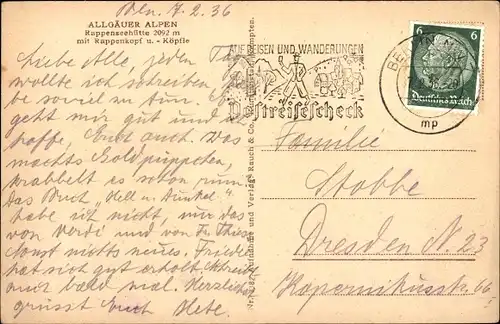 Bln. 7.2.36
ALLGÄUER ALPEN
Rappenseehütte 2092 m
mit Rappenkopf u. -Köpfle
Liebe Alle, jeden Tag
wollte ich schreiben
be soviel zu tun.
geht mir gut und
hoffe, Euch auch. Was
machts Goldpüppchen,
krabbelt es schon rum
Das Buch "Hell u. Dunkel"
habe ich nicht, nur das
von Verdi und von Fr. Thiess
Sonst nichts neues. Friedel
hat sich gut erholt. Schreibt
mal. Herzlichst
grüsst Euch Hete.
AUF REISEN UND WANDERUNGEN
Postreisescheck
6 6
Deutsches Reich
BERLIN
mp
Aufnahme und Verlag: Rauch & Co. Kempten.
Familie
Stobbe
Dresden N. 23
Kopernikusstr. 66